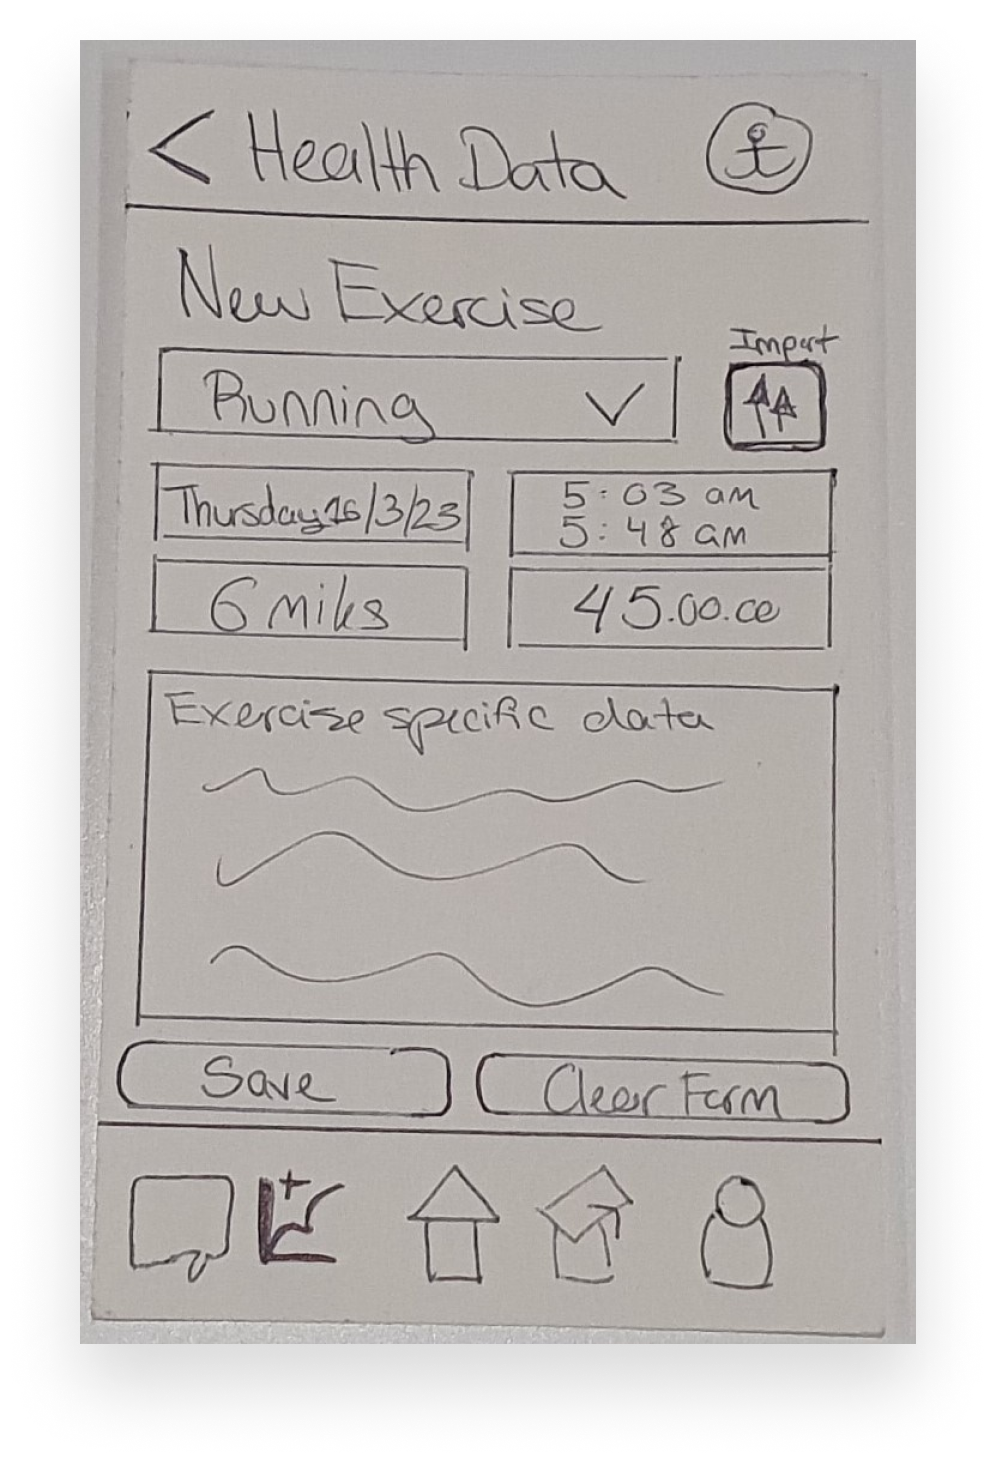 < Health Data
New Exercise
Import
Running
Thursday 16/3/23
5:03 am
5:48 am
6 miles
45.00.00
Exercise specific data
Save
Clear Form